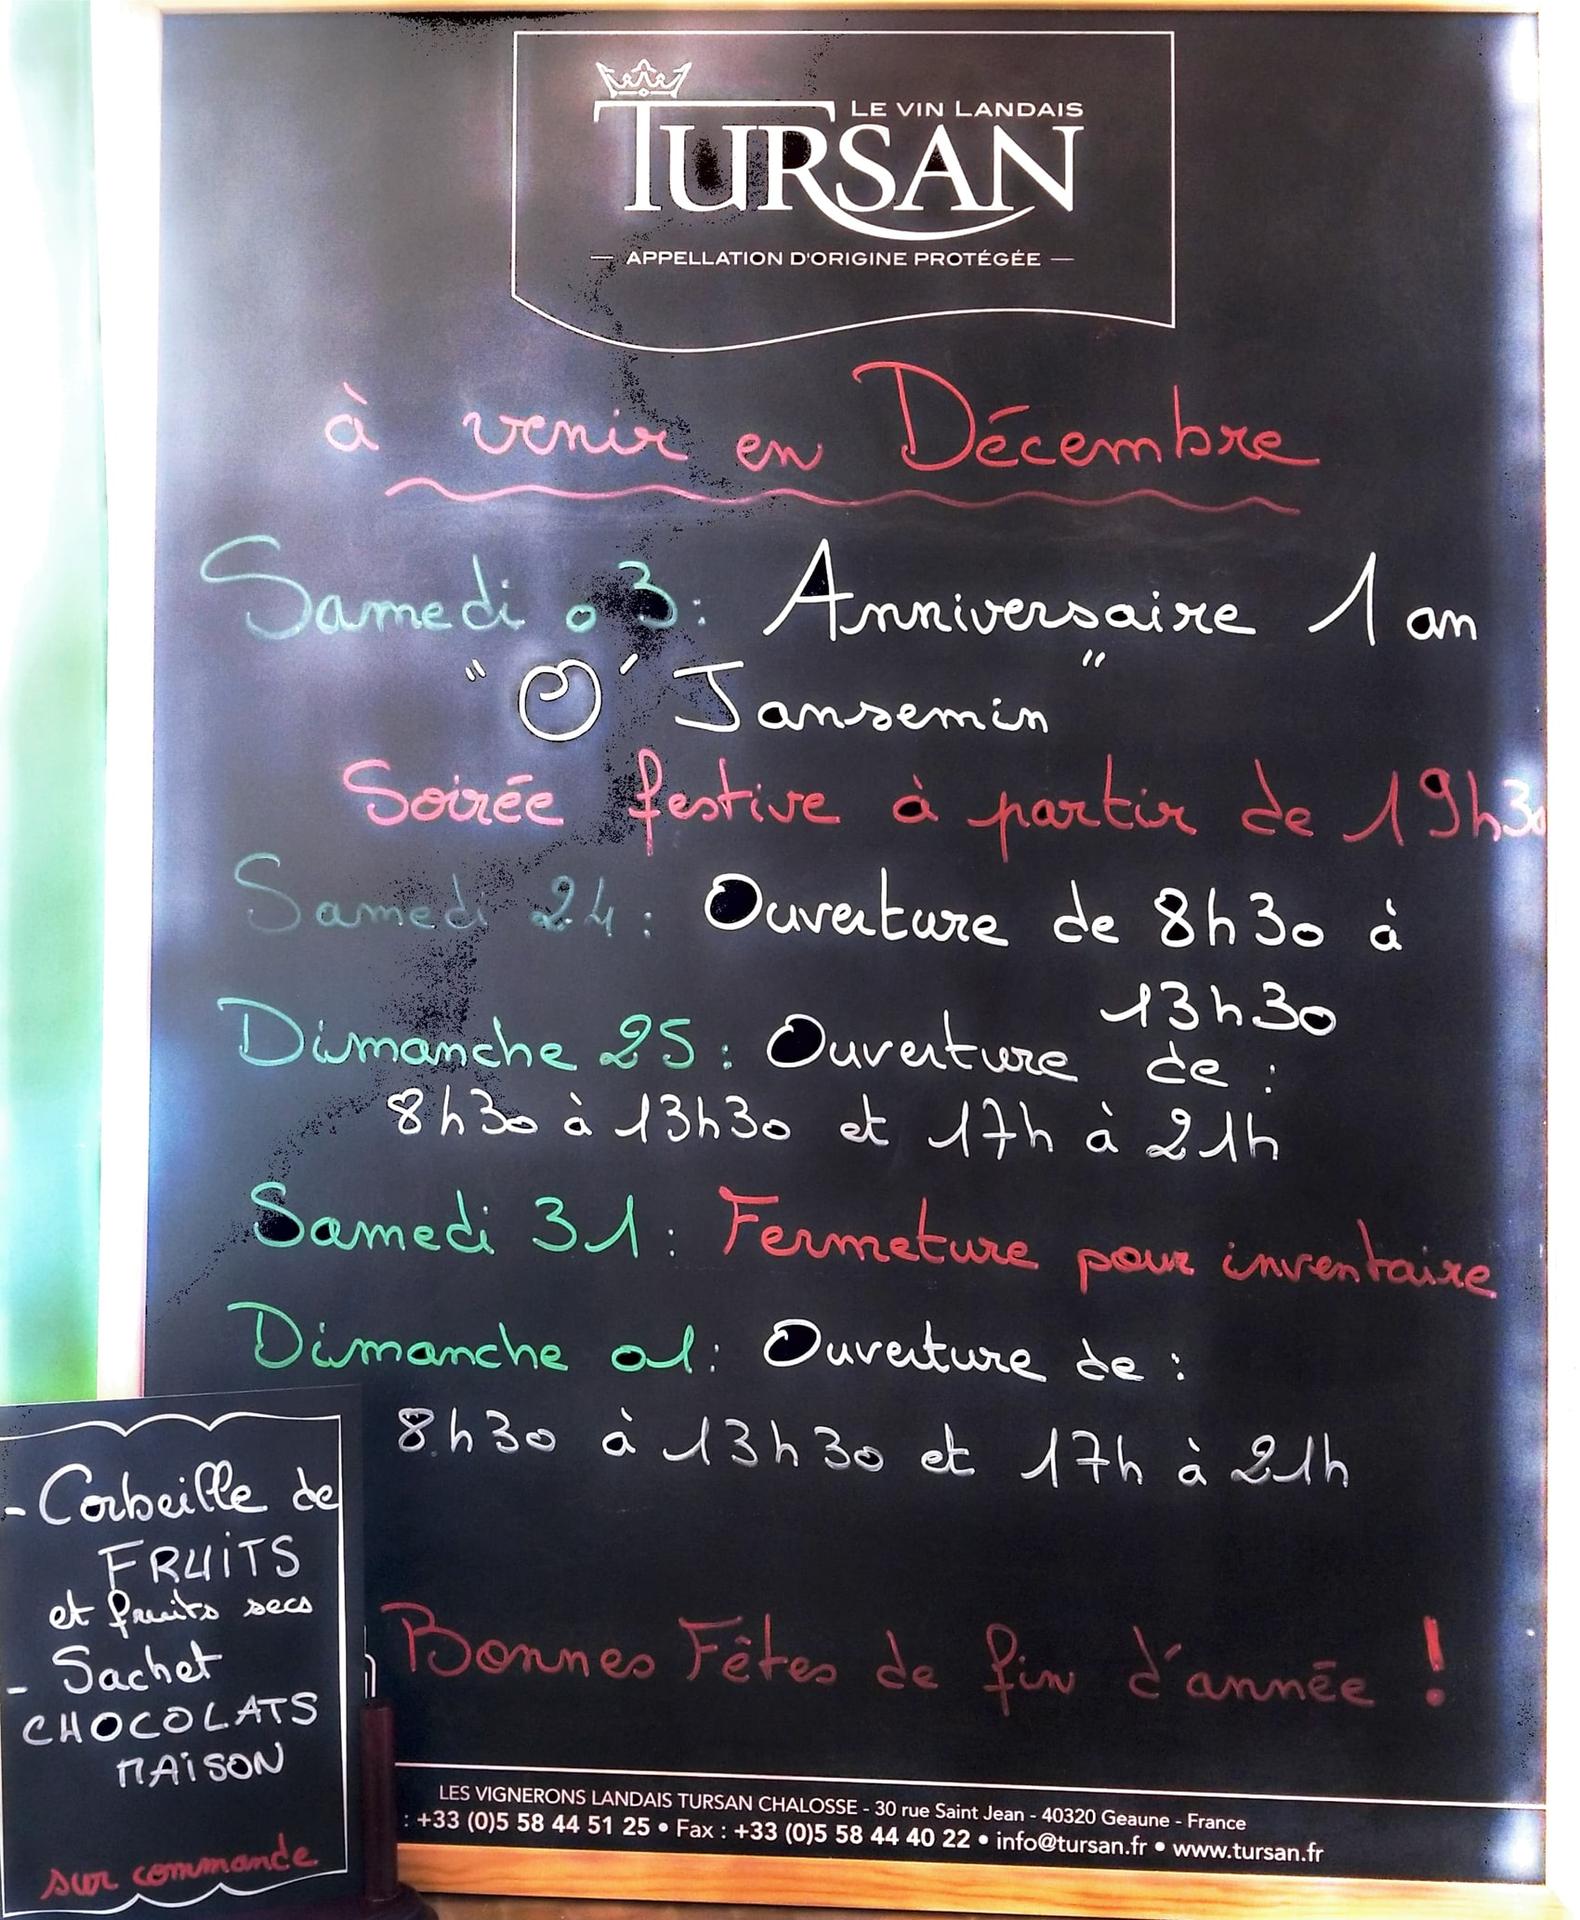 LE VIN LANDAIS
TURSAN
— APPELLATION D'ORIGINE PROTÉGÉE —
à venir en Décembre
Samedi 03 : Anniversaire 1 an
"O' Jansemin"
Soirée festive à partir de 19h30
Samedi 24 : Ouverture de 8h30 à
13h30
Dimanche 25 : Ouverture de :
8h30 à 13h30 et 17h à 21h
Samedi 31 : Fermeture pour inventaire
Dimanche 01 : Ouverture de :
8h30 à 13h30 et 17h à 21h
Bonnes Fêtes de fin d'année !
- Corbeille de
FRUITS
et fruits secs
- Sachet
CHOCOLATS
MAISON
sur commande
LES VIGNERONS LANDAIS TURSAN CHALOSSE - 30 rue Saint Jean - 40320 Geaune - France
: +33 (0)5 58 44 51 25 • Fax : +33 (0)5 58 44 40 22 • info@tursan.fr • www.tursan.fr